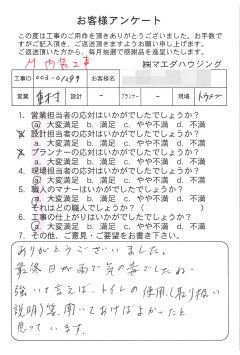 お客様アンケート
この度は工事のご用命を頂きありがとうございました。お手数で
すがご記入頂き、ご返送頂きますようお願い申し上げます。
ご返送頂いた方から、毎月抽選で感謝品を進呈いたします。
内装工事
㈱マエダハウジング
工事ID
お客様名
営業 設計 - プランナー - 現場
1. 営業担当者の応対はいかがでしたでしょうか?
a. 大変満足 b. 満足 c. やや不満 d. 不満
2. 設計担当者の応対はいかがでしたでしょうか?
a. 大変満足 b. 満足 c. やや不満 d. 不満
3. プランナーの応対はいかがでしたでしょうか?
a. 大変満足 b. 満足 c. やや不満 d. 不満
4. 現場担当者の応対はいかがでしたでしょうか?
a. 大変満足 b. 満足 c. やや不満 d. 不満
5. 職人のマナーはいかがでしたでしょうか?
a. 大変満足 b. 満足 c. やや不満 d. 不満
それはどの職人でしょうか? ( )
6. 工事の仕上がりはいかがでしたでしょうか?
a. 大変満足 b. 満足 c. やや不満 d. 不満
7. その他、ご意見・ご要望をお書き下さい。
ありがとうございました。
最終日が雨で気の毒でしたね。
強いて言えば、トイレの使用(取り扱い
説明)等、聞いておけばよかったと
思っています。